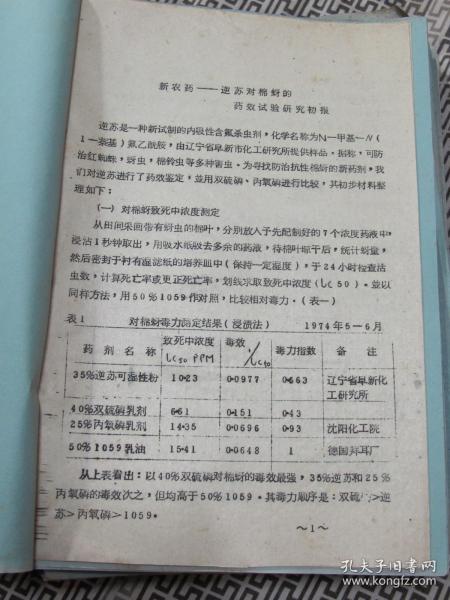 新农药——逆苏对棉蚜的
药效试验研究初报
逆苏是一种新试制的内吸性含氟杀虫剂，化学名称为N—甲基—N（
1—萘基）氟乙酰胺，由辽宁省阜新市化工研究所提供样品。据称，可防
治红蜘蛛，蚜虫，棉铃虫等多种害虫。为寻找防治抗性棉蚜的新药剂，我
们对逆苏进行了药效鉴定，並用双硫磷、丙氧磷进行比较，其初步材料整
理如下：
（一）对棉蚜致死中浓度测定
从田间采回带有蚜虫的棉叶，分别放入予先配制好的7个浓度药液中，
浸沾1秒钟取出，用吸水纸吸去多余的药液，待棉叶晾干后，统计蚜量，
然后密封于衬有湿滤纸的培养皿中（保持一定湿度），于24小时检查活
虫数，计算死亡率或更正死亡率，划线求取致死中浓度（LC50）。並以
同样方法，用50%1059作对照，比较相对毒力。（表一）
表1 对棉蚜毒力测定结果（浸渍法） 1974年5—6月
药剂名称 致死中浓度 LC50 PPM 毒效 1/LC50 毒力指数 备注
35%逆苏可湿性粉 10·23 0·0977 0·663 辽宁省阜新化
工研究所
40%双硫磷乳剂 6·61 0·151 0·43
25%丙氧磷乳剂 14·35 0·0696 0·93 沈阳化工院
50%1059乳油 15·41 0·0648 1 德国拜耳厂
从上表看出：以40%双硫磷对棉蚜的毒效最强，35%逆苏和25%
丙氧磷的毒效次之，但均高于50%1059。其毒力顺序是：双硫磷>逆
苏>丙氧磷>1059。
～1～
孔夫子旧书网
www.kongfz.com